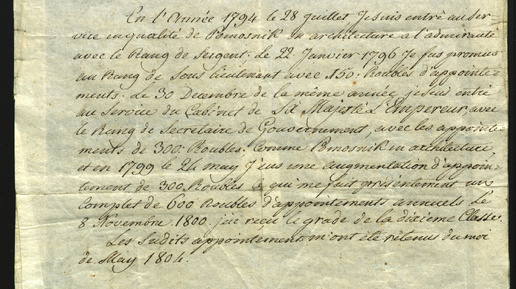 En l'Année 1794 le 28 Juillet Je suis entré au ser-
vice en qualité de Pmosnik en architecture à l'admirauté
avec le Rang de Sergent. le 22 Janvier 1796 Je fus promu
au Rang de Sous lieutenant avec 150. Roubles d'appointe-
ments. le 30 Decembre de la même année, je suis entré
au Service du Cabinet de Sa Majesté L'Empereur, avec
le Rang de Secretaire de Gouvernement, avec les appointe-
ments de 300. Roubles. Comme Pmosnik en architecture,
et en 1799 le 24 may J'eus une augmentation d'appoin-
tement de 300. Roubles & qui me fait présentement un
Complet de 600 Roubles d'appointements annuels. Le
8 Novembre 1800. j'ai reçu le grade de la dixieme Classe.
Les Sudits appointement m'ont été retenus du moi
de May 1804.